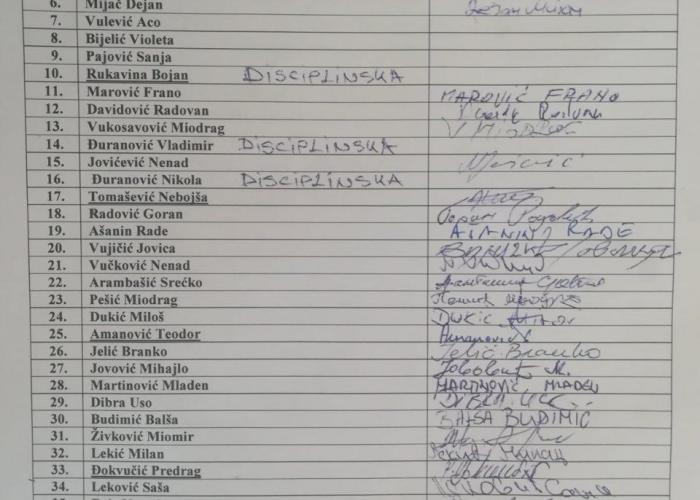 6. Mijač Dejan
7. Vulević Aco
8. Bijelić Violeta
9. Pajović Sanja
10. Rukavina Bojan DISCIPLINSKA
11. Marović Frano MAROVIĆ FRANO
12. Davidović Radovan
13. Vukosavović Miodrag
14. Đuranović Vladimir DISCIPLINSKA
15. Jovićević Nenad
16. Đuranović Nikola DISCIPLINSKA
17. Tomašević Nebojša
18. Radović Goran
19. Ašanin Rade AŠANIN RADE
20. Vujičić Jovica
21. Vučković Nenad
22. Arambašić Srećko
23. Pešić Miodrag
24. Dukić Miloš DUKIĆ
25. Amanović Teodor Amanović
26. Jelić Branko Jelić Branko
27. Jovović Mihajlo M.
28. Martinović Mladen MARTINOVIĆ MLADEN
29. Dibra Uso
30. Budimić Balša BALŠA BUDIMIĆ
31. Živković Miomir
32. Lekić Milan
33. Đokvučić Predrag
34. Leković Saša